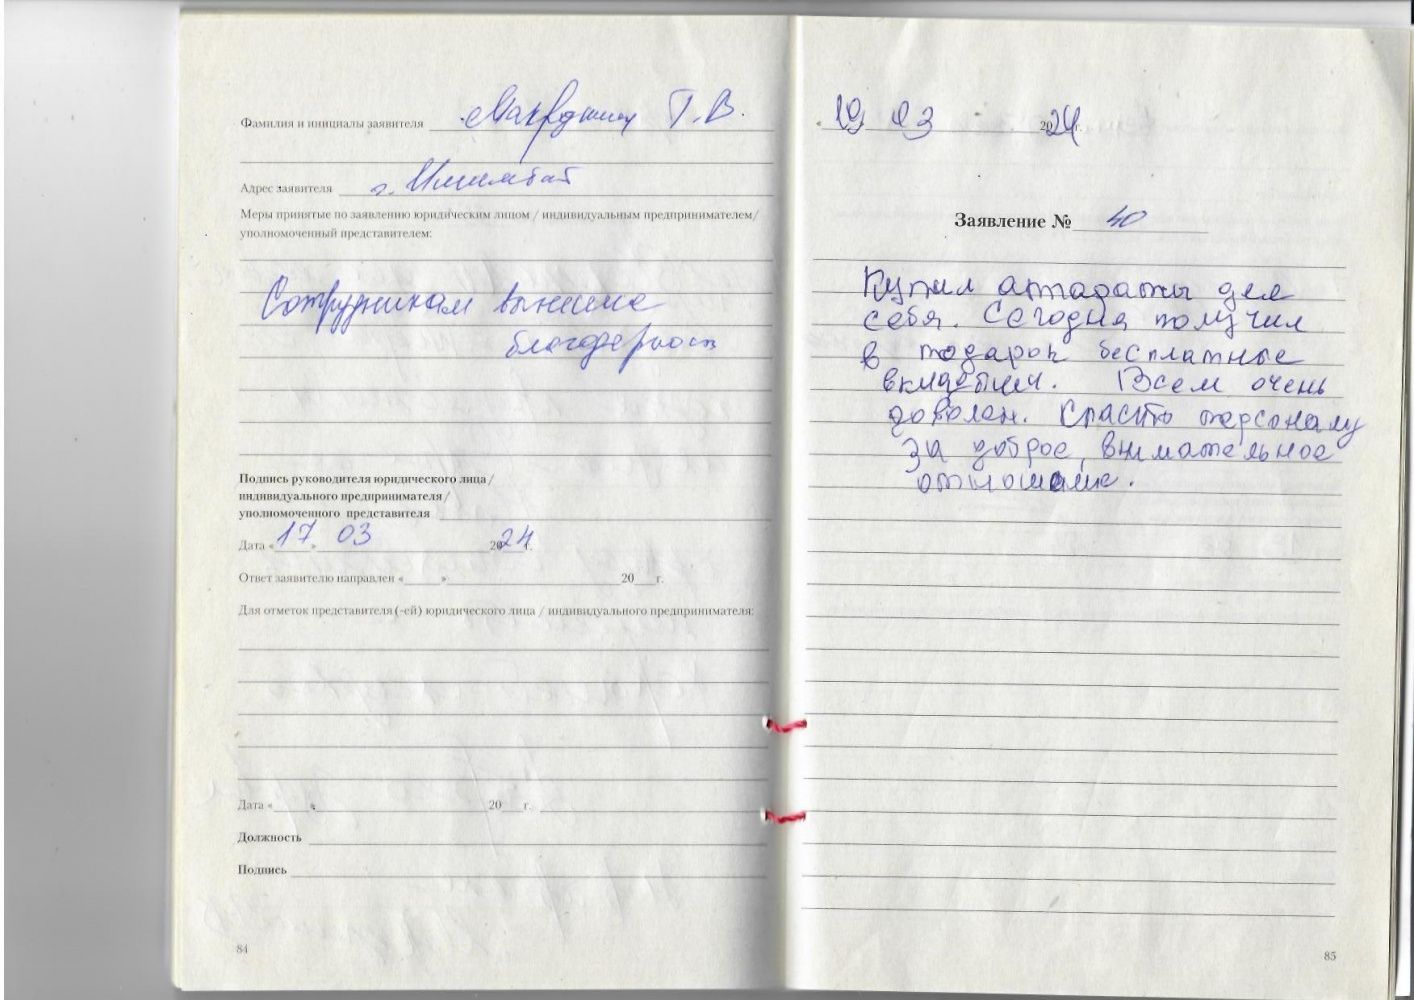 Фамилия и инициалы заявителя Г. В.
Адрес заявителя г. Ишимбай
Меры принятые по заявлению юридическим лицом / индивидуальным предпринимателем/
уполномоченный представителем:
Сотрудникам вынесена
благодарность
Подпись руководителя юридического лица/
индивидуального предпринимателя/
уполномоченного представителя
Дата «17» 03 2024г.
Ответ заявителю направлен «___» 20__г.
Для отметок представителя(-ей) юридического лица / индивидуального предпринимателя:
Дата «___» 20__г.
Должность
Подпись
84
19 03 2024г.
Заявление № 40
Купил аппараты для
себя. Сегодня получил
в подарок бесплатные
вкладыши. Всем очень
доволен. Спасибо персоналу
за доброе, внимательное
отношение.
85